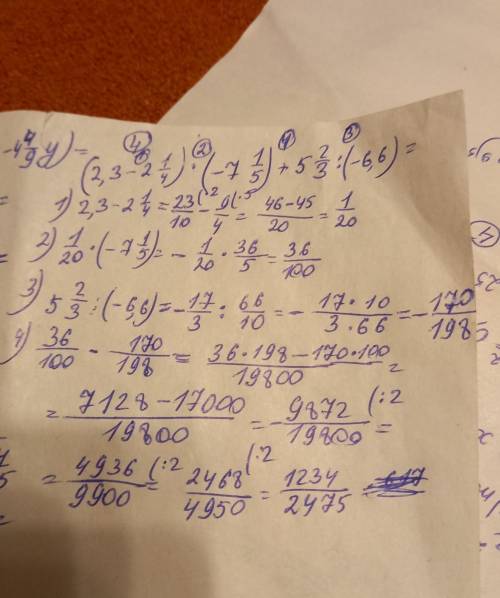 -4 4/9 y) =
(2,3 - 2 1/4) · (-7 1/5) + 5 2/3 : (-6,6) =
1) 2,3 - 2 1/4 = 23/10 (·2 - 9/4 (·5 = 46-45/20 = 1/20
2) 1/20 · (-7 1/5) = - 1/20 · 36/5 = 36/100
3) 5 2/3 : (-6,6) = - 17/3 : 66/10 = - 17·10/3·66 = - 170/198
4) 36/100 - 170/198 = 36·198-170·100/19800 =
= 7128-17000/19800 = - 9872/19800 (:2 =
= 4936/9900 (:2 = 2468/4950 (:2 = 1234/2475 =